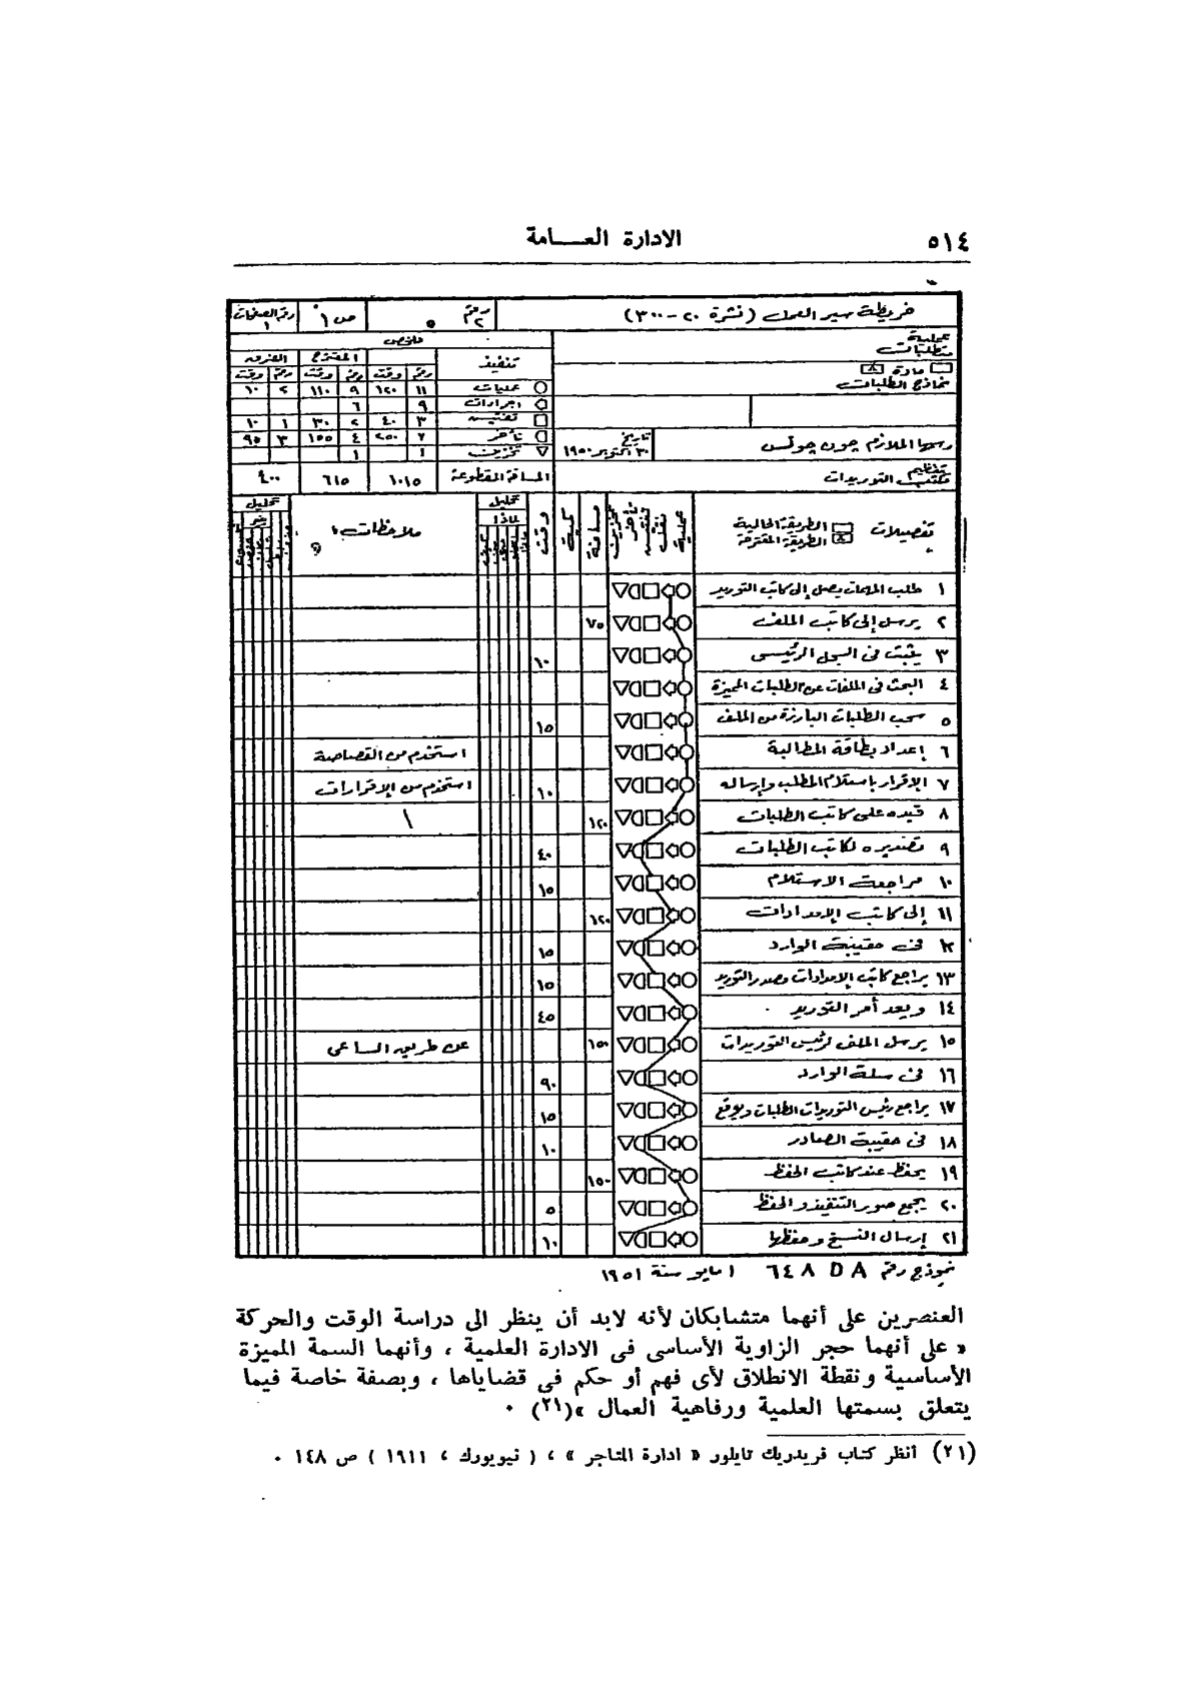 ٥١٤
الادارة العـــامة
خريطة سير العمل (نشرة ٢٠-٣٠٠)
رقم ٢ ٥
ص ١
رقم الصفحات ١
عملية
متطلبات
مادة
نماذج الطلبات
رسمها الملازم چون چونس
تاريخ ٣٠ اكتوبر ١٩٥٠
تنظيم
مكتب التوريدات
ملخص
تنفيذ المقترح الفرق
رقم وقت رقم وقت رقم وقت
عمليات ١١ ١٢٠ ٩ ١١٠ ٢ ١٠
اجراءات ٩ ٦
تفتيش ٣ ٤٠ ٢ ٣٠ ١ ١٠
تأخر ٧ ٢٥٠ ٤ ١٥٥ ٣ ٩٥
تخزين ١ ١
المسافة المقطوعة ١٠١٥ ٦١٥ ٤٠٠
تفصيلات الطريقة الحالية
الطريقة المقترحة
عملية نقل تفتيش تأخر تخزين مسافة كمية وقت
تحليل
لماذا
ملاحظات
تحليل
١ طلب المهمات يصل إلى كاتب التوريد
٢ يرسل إلى كاتب الملف ٧٥
٣ يثبت فى السجل الرئيسى ١٠
٤ البحث فى الملفات عن الطلبات المميزة
٥ سحب الطلبات البارزة من الملف ١٥
٦ إعداد بطاقة المطالبة استخدم من القصاصة
٧ الإقرار باستلام المطلب وإرساله ١٠ استخدم من الإقرارات
٨ قيده على كاتب الطلبات ١٢٠
٩ تصديره لكاتب الطلبات ٤٠
١٠ مراجعة الاستلام ١٥
١١ إلى كاتب الإمدادات ١٢٠
١٢ فى حقيبة الوارد ١٥
١٣ يراجع كاتب الإمدادات مصدر التوريد ١٥
١٤ ويعد أمر التوريد ٤٥
١٥ يرسل الملف لرئيس التوريدات ١٥٠ عن طريق الساعى
١٦ فى سلة الوارد ٩٠
١٧ يراجع رئيس التوريدات الطلبات ويوقع ١٥
١٨ فى حقيبة الصادر ١٠
١٩ يحفظ عند كاتب الحفظ ١٥٠
٢٠ يجمع صور التنفيذ والحفظ ٥
٢١ إرسال النسخ وحفظها ١٠
نموذج رقم ٦٤٨ DA ١ مايو سنة ١٩٥١
العنصرين على أنهما متشابكان لأنه لابد أن ينظر الى دراسة الوقت والحركة
« على أنهما حجر الزاوية الأساسى فى الادارة العلمية ، وأنهما السمة المميزة
الأساسية ونقطة الانطلاق لأى فهم أو حكم فى قضاياها ، وبصفة خاصة فيما
يتعلق بسمتها العلمية ورفاهية العمال »(٢١) ٠
(٢١) أنظر كتاب فريدريك تايلور « ادارة المتاجر » ، ( نيويورك ، ١٩١١ ) ص ١٤٨ ٠